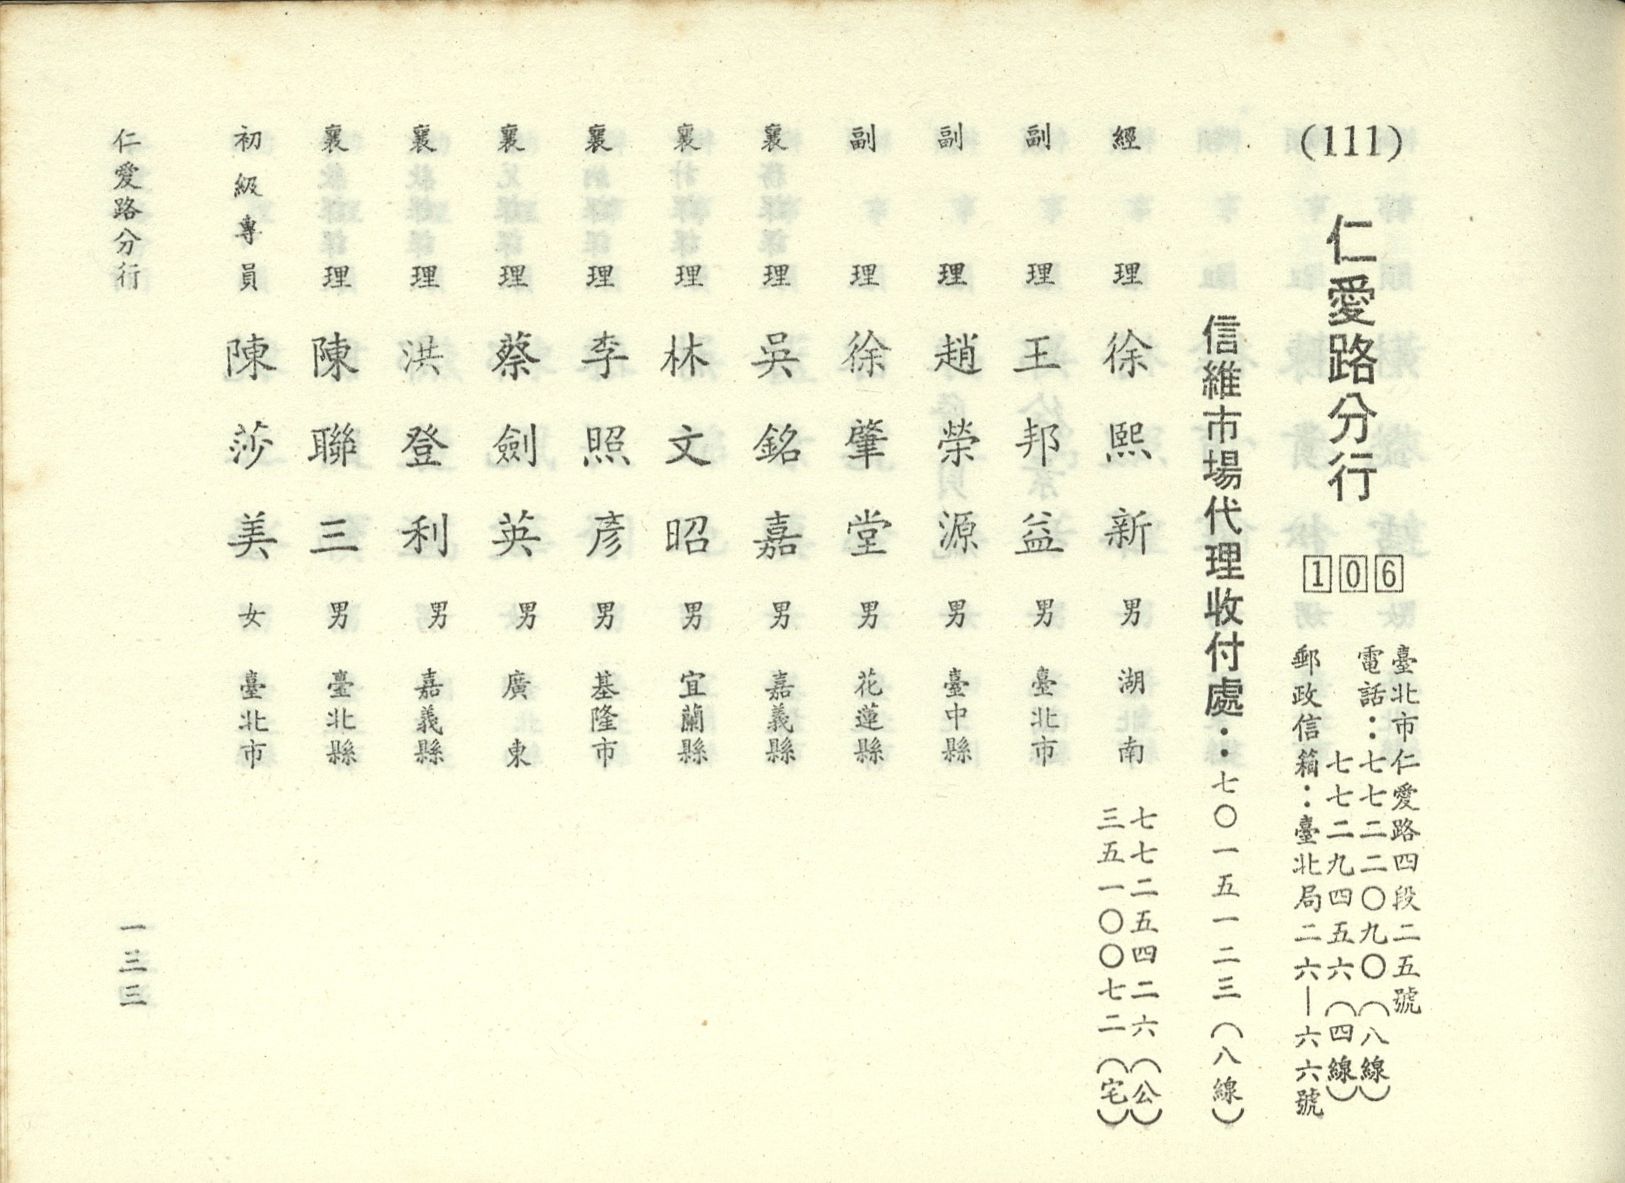 (111) 仁愛路分行 106
臺北市仁愛路四段二五號
電話：七七二二〇九〇（八線）
七七二九四五六（四線）
郵政信箱：臺北局二六—六六號
信維市場代理收付處：七〇一五一二三（八線）
經理 徐熙新 男 湖南 七七二五四二六（公）
三五一〇〇七二（宅）
副理 王邦益 男 臺北市
副理 趙榮源 男 臺中縣
副理 徐肇堂 男 花蓮縣
襄理 吳銘嘉 男 嘉義縣
襄理 林文昭 男 宜蘭縣
襄理 李照彥 男 基隆市
襄理 蔡劍英 男 廣東
襄理 洪登利 男 嘉義縣
襄理 陳聯三 男 臺北縣
初級專員 陳莎美 女 臺北市
仁愛路分行 一三三